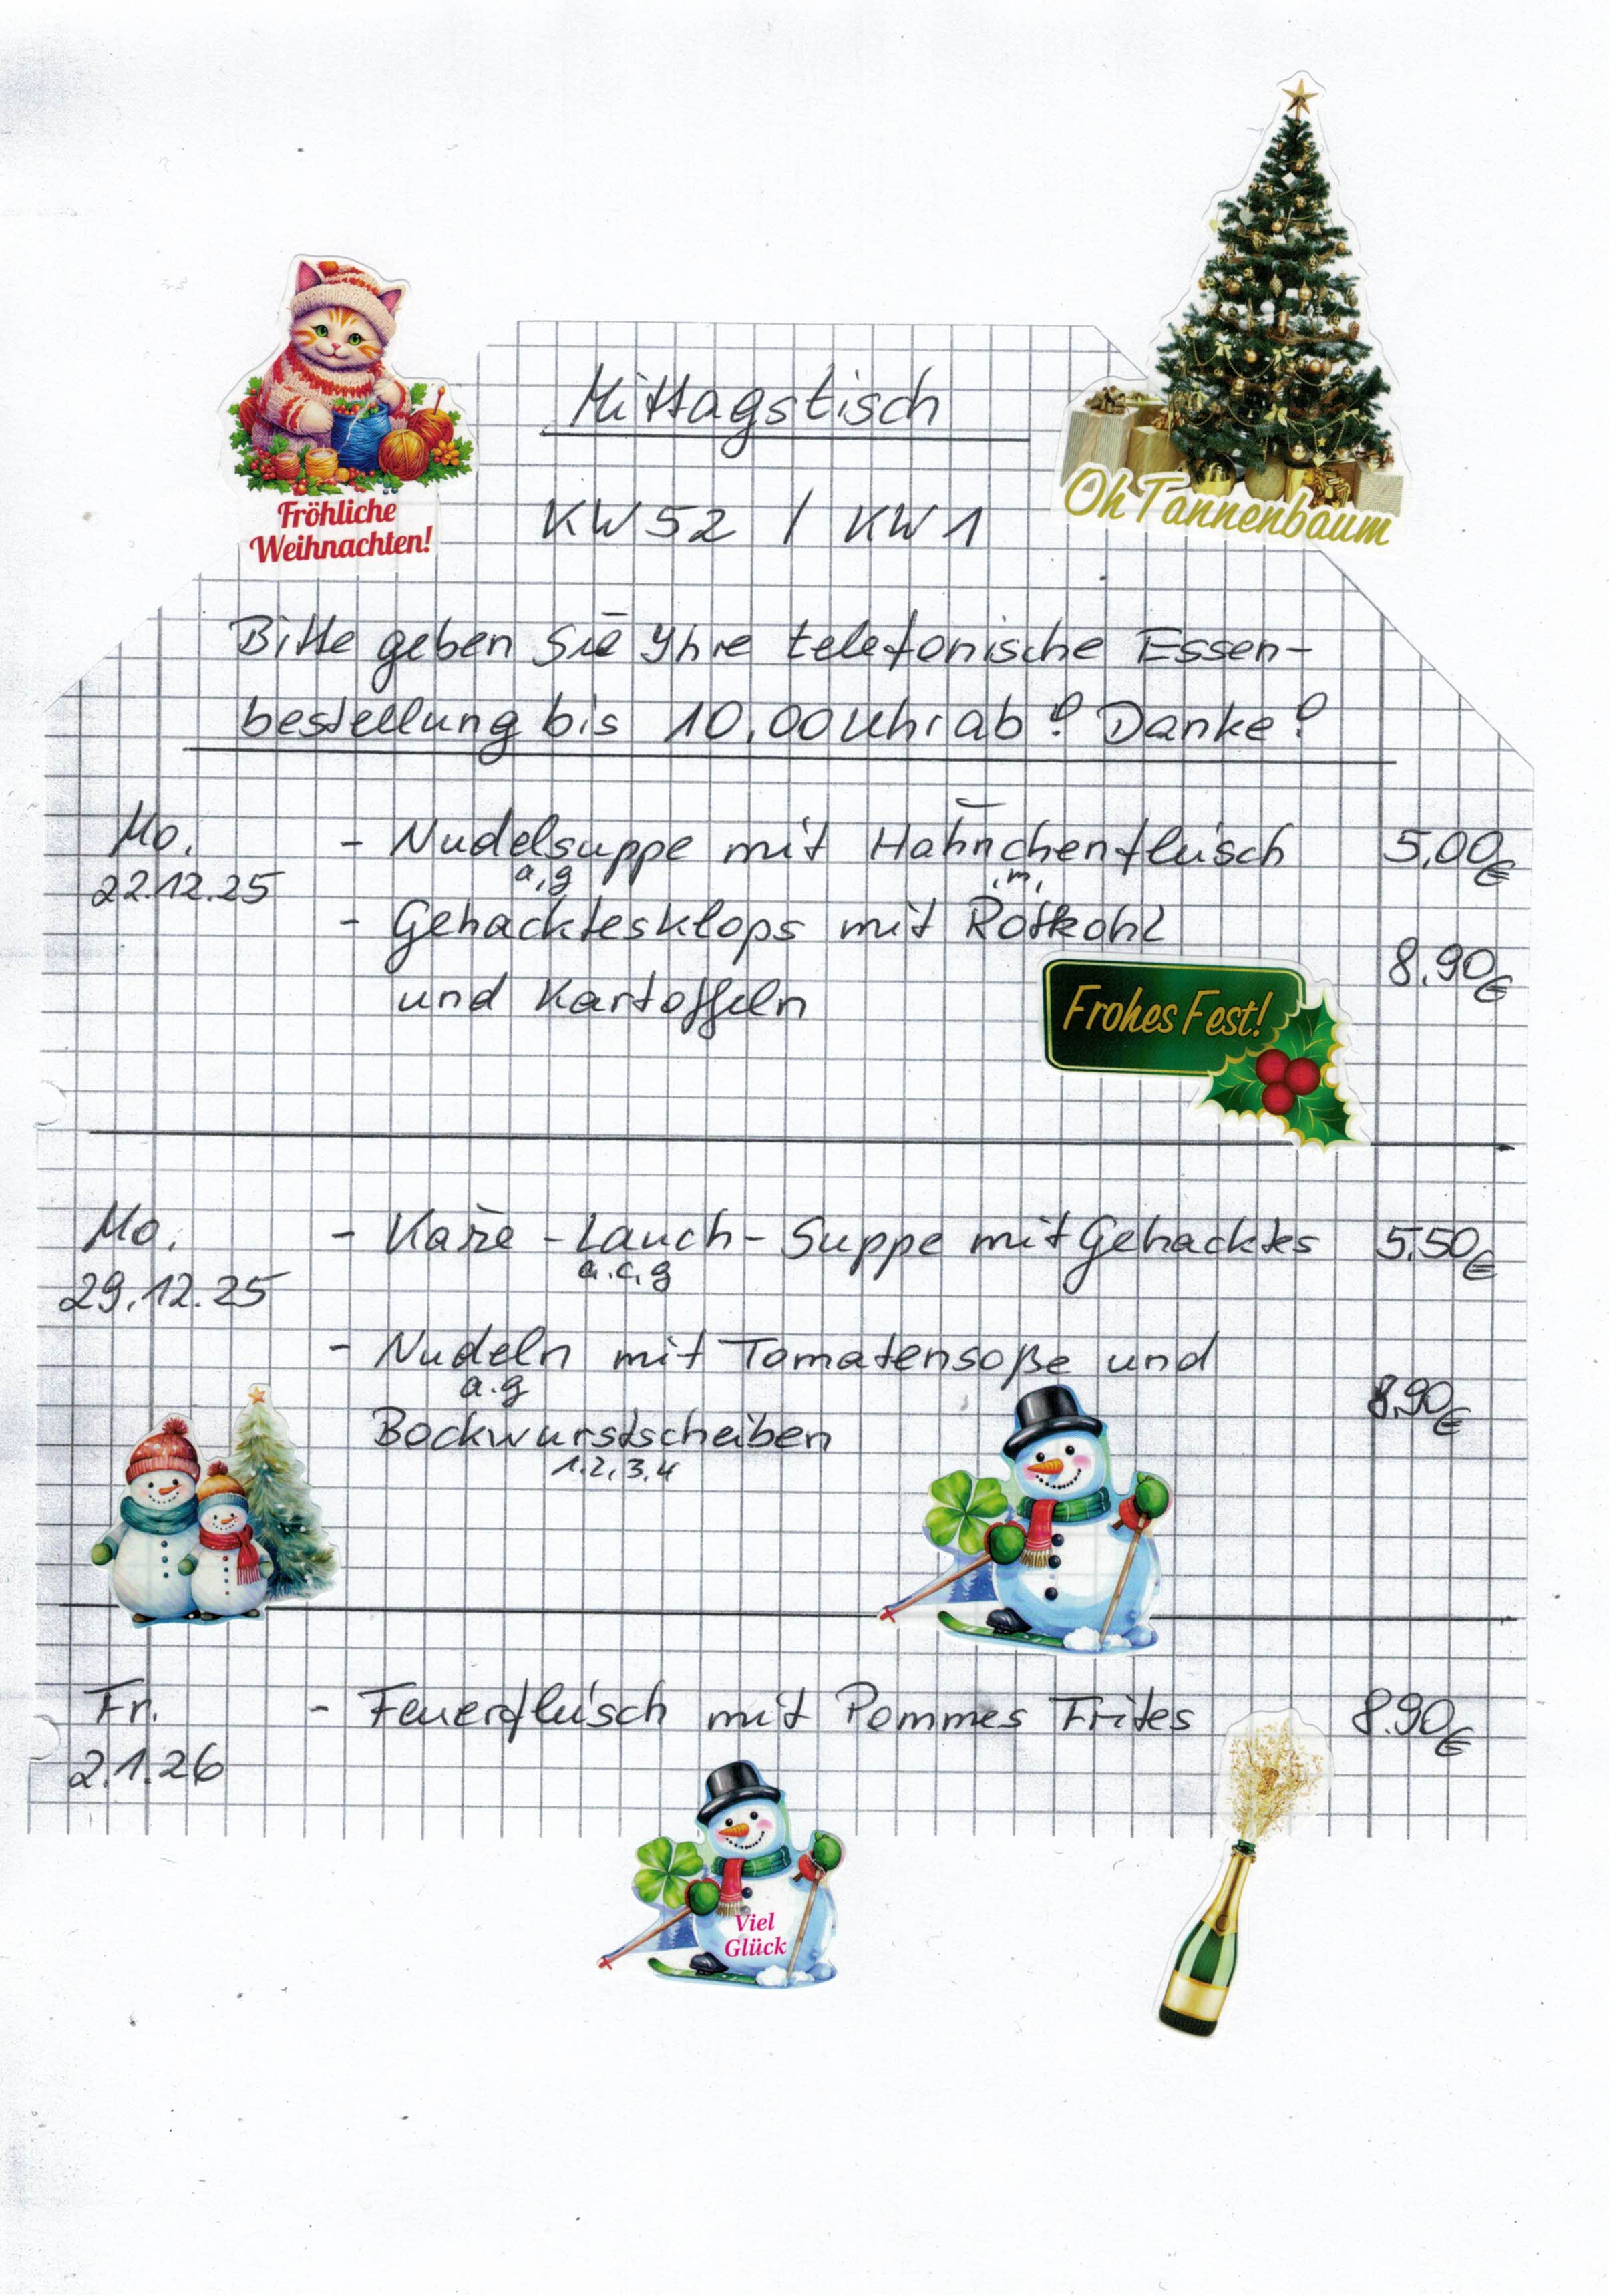 Mittagstisch
Fröhliche
Weihnachten!
Oh Tannenbaum
KW 52 / KW 1
Bitte geben Sie Ihre telefonische Essen-
bestellung bis 10.00 Uhr ab! Danke!
Mo. - Nudelsuppe mit Hähnchenfleisch 5,00€
22.12.25 a,g ,m,
- Gehacktesklops mit Rotkohl
und Kartoffeln 8,90€
Frohes Fest!
Mo. - Käse-Lauch-Suppe mit Gehacktes 5,50€
29.12.25 a.c,g
- Nudeln mit Tomatensoße und
a.g 8,90€
Bockwurstscheiben
1.2,3,4
Fr. - Feuerfleisch mit Pommes Frites 8.90€
2.1.26
Viel
Glück